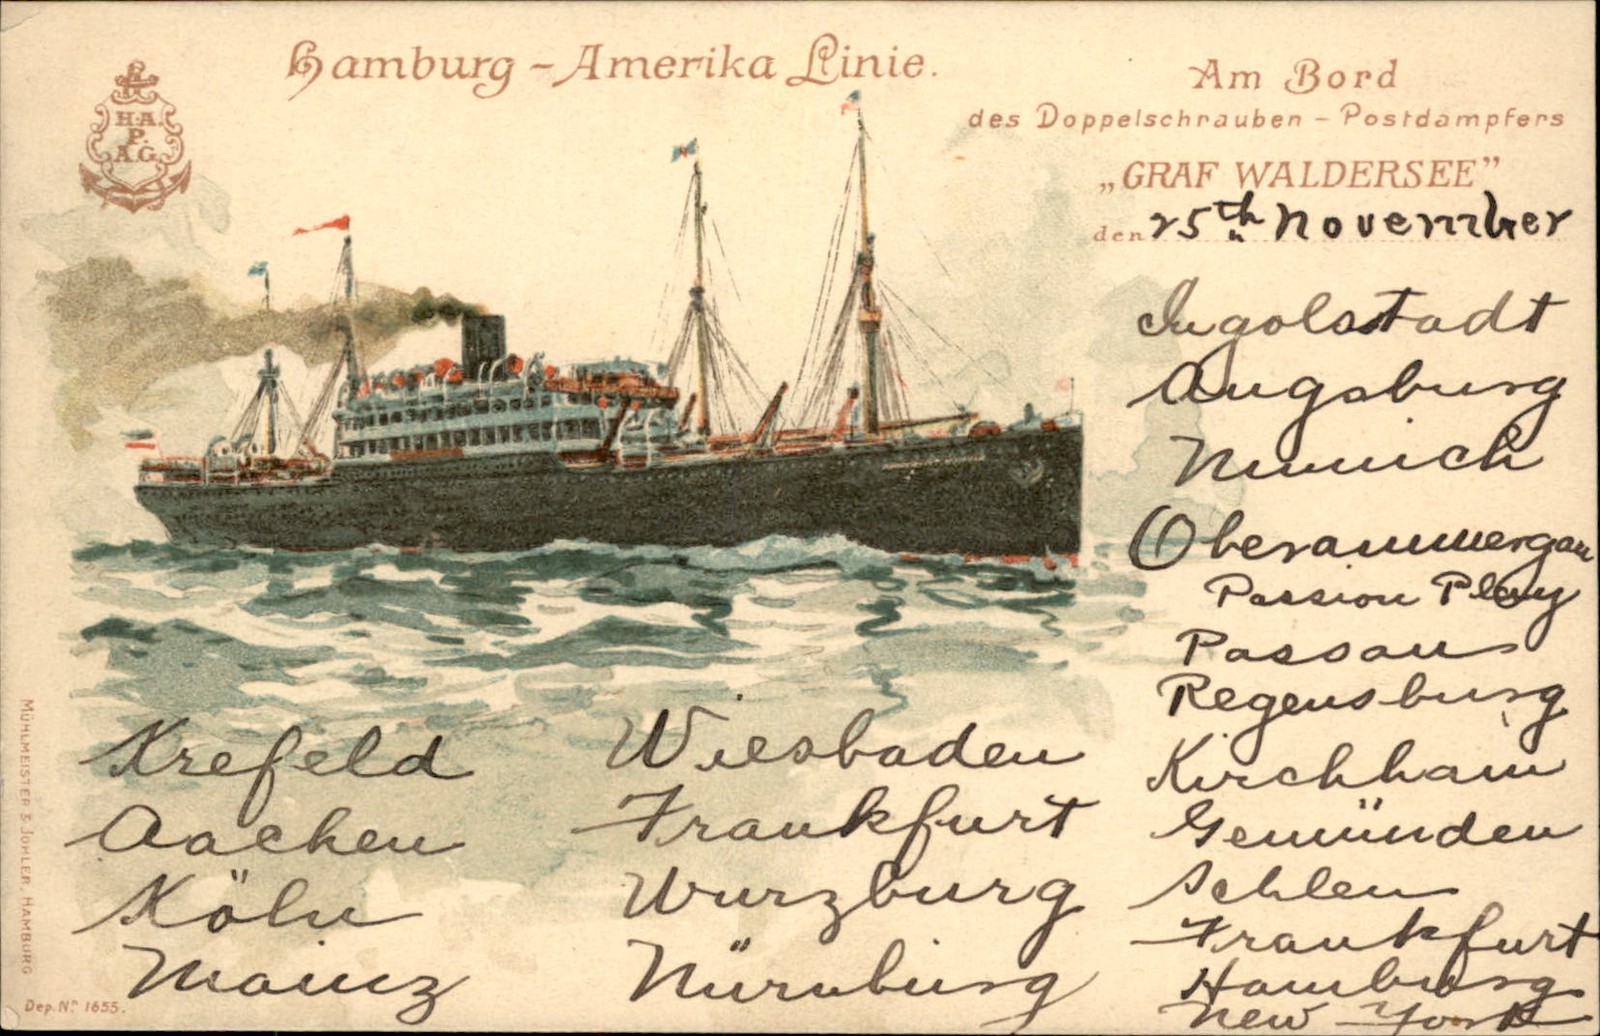 Hamburg - Amerika Linie.
H.A.
P.
A.G.
Am Bord
des Doppelschrauben - Postdampfers
„GRAF WALDERSEE”
den 25th November
Ingolstadt
Augsburg
Munich
Oberammergau
Passion Play
Passau
Regensburg
Kirchham
Gemünden
Schlen
Frankfurt
Hamburg
New York
Krefeld
Aachen
Köln
Mainz
Wiesbaden
Frankfurt
Wurzburg
Nürnburg
MÜHLMEISTER & JOHLER, HAMBURG
Dep. No. 1655.